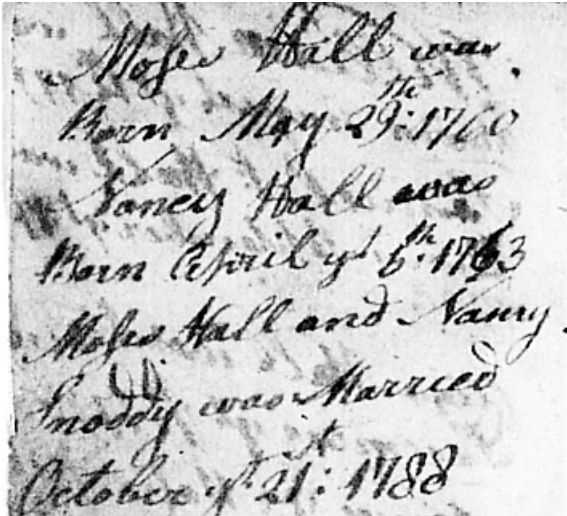 Moses Hall was
Born May 29th: 1760
Nancy Hall was
Born April ye 6th: 1763
Moses Hall and Nancy
Snoddy was Married
October ye 21st: 1788